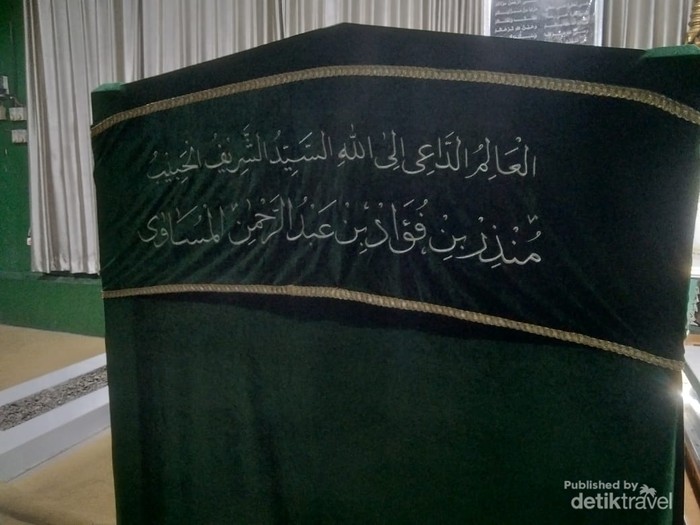 العَالِمُ الدَّاعِى اِلىَ اللهِ السَيِّدُ الشَّرِيفُ الحَبِيبُ
مُنْذِرْ بِنْ فُؤَادْ بِنْ عَبْدُ الرَّحْمٰنْ المُسَاوٰى
Published by
detiktravel